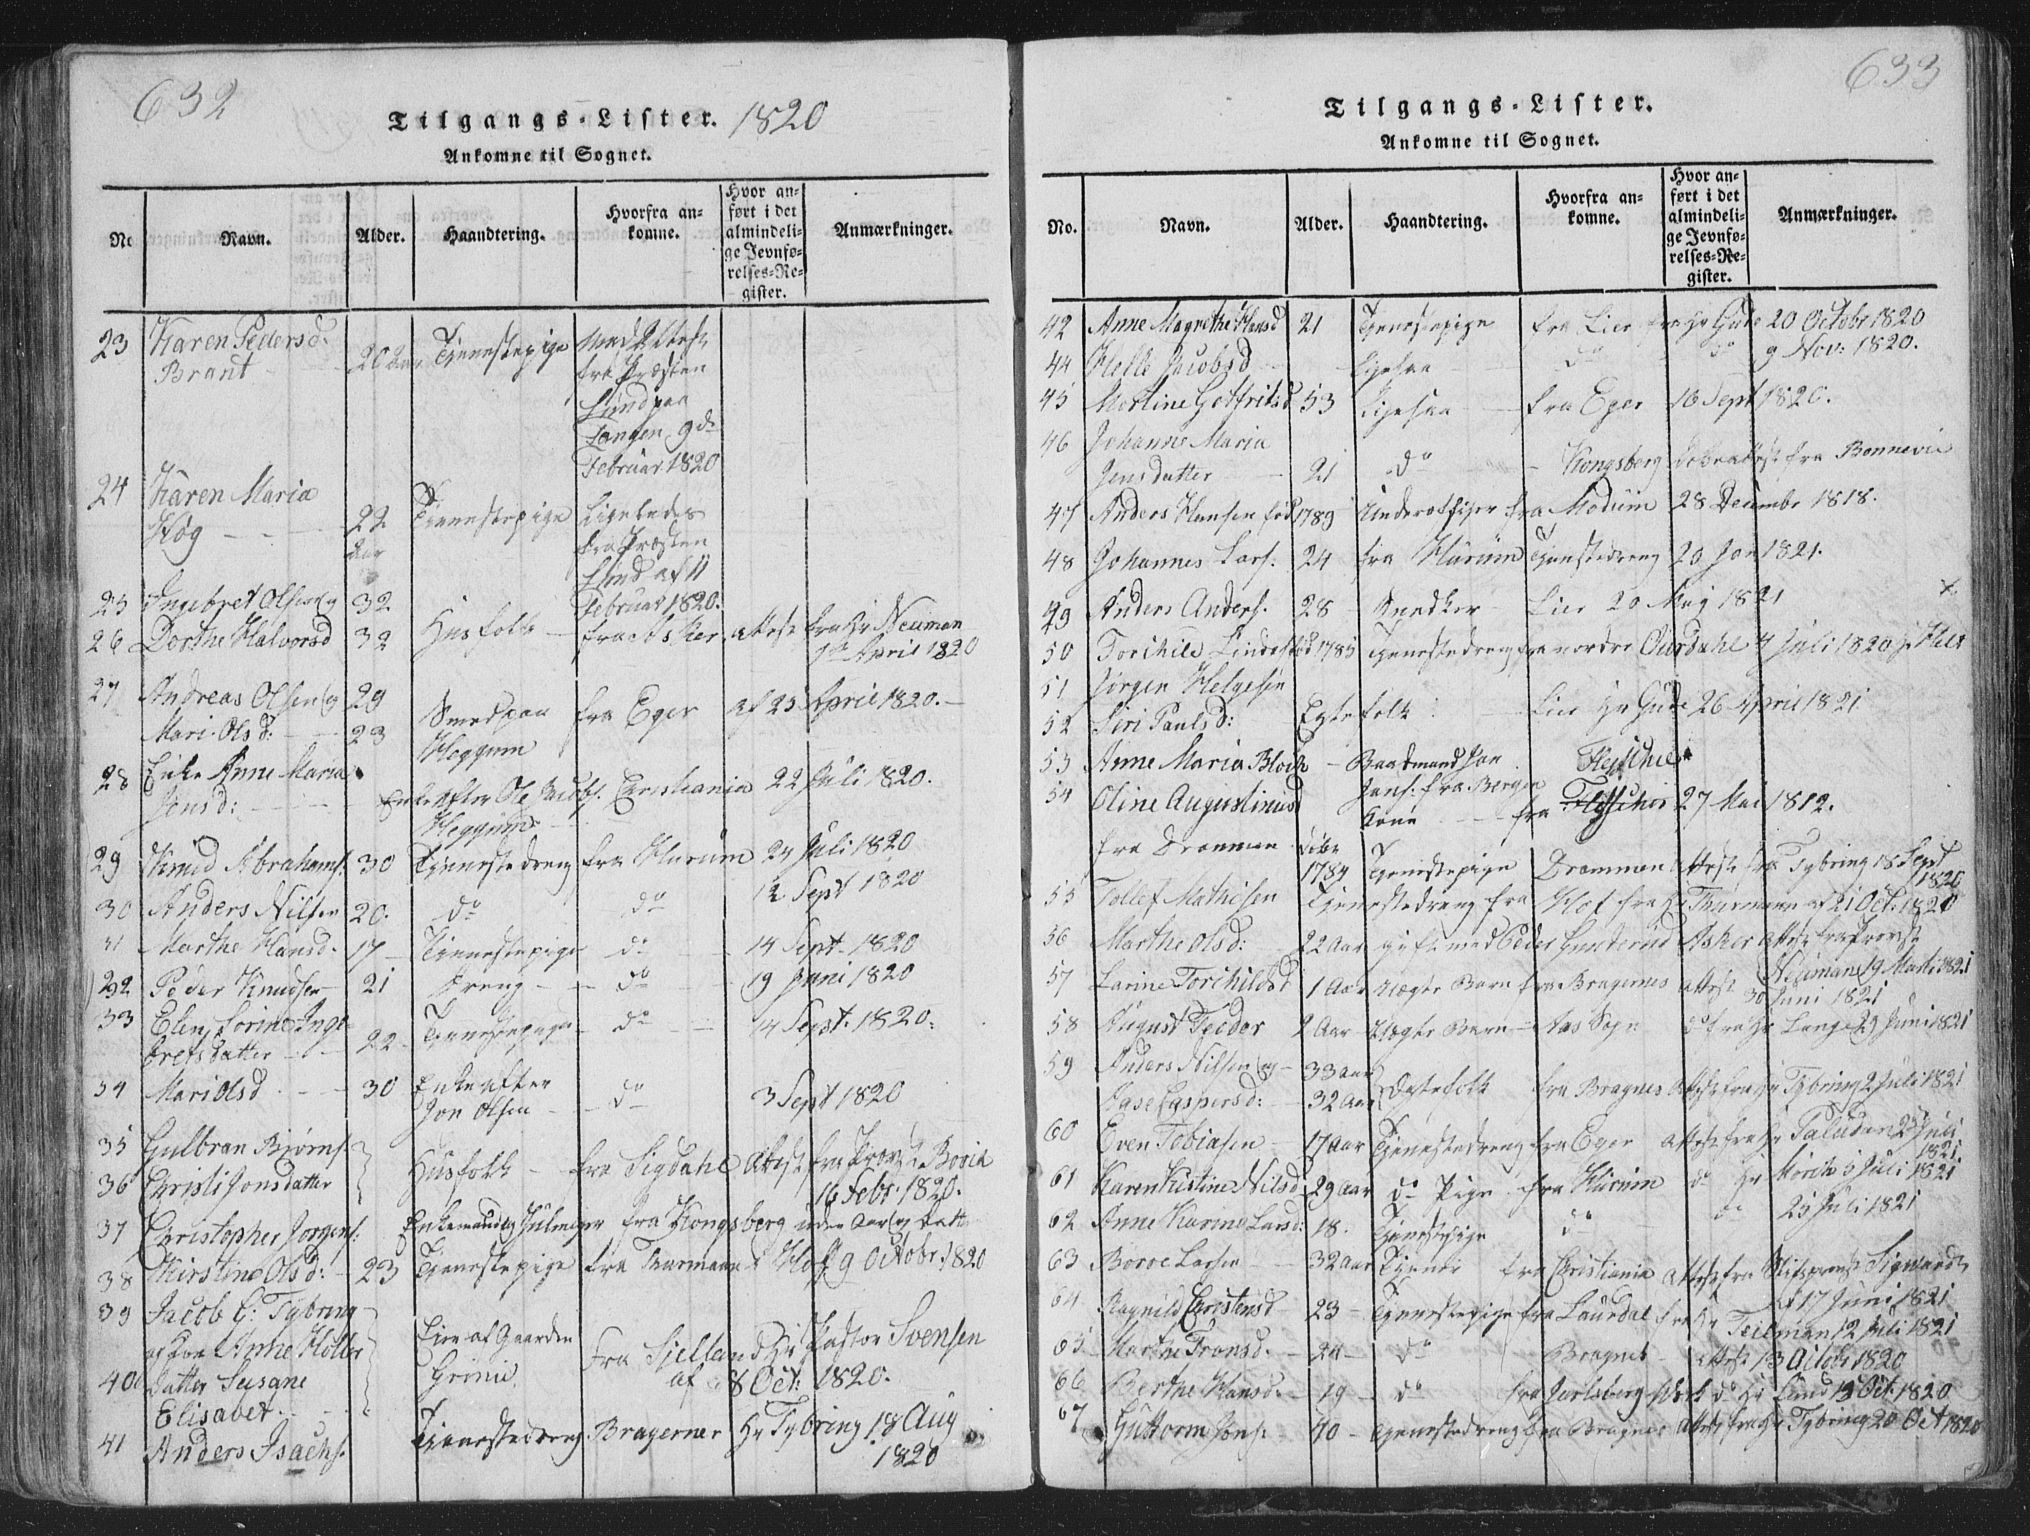 632
Tilgangs-Lister. 1820
Ankomne til Sognet.
No
Navn.
Alder.
Haandtering.
Hvorfra an-
komne.
Hvor an-
ført i det
almindeli-
ge Jevnfø-
relses-Re-
gister.
Anmærkninger.
23 Karen Pedersd: 20 Aar Tjenestepige med Attest
Brant fra Præsten
Lund paa
Tangen 9de
Februar 1820
24 Karen Maria
Kog 22 Tjenestepige Ligeledes
Aar fra Præsten
Lund af 11
Februar 1820.
25 Ingebret Olsen og 32
26 Dorthe Halvorsd 32 Husfolk fra Asker Attest fra Hr Neuman
April 1820
27 Andreas Olsen og 29
Mari Olsd: 23 Smed paa fra Eger af 25 April 1820.
Heggum
28 Enke Anne Maria
Jensd: Enke efter Ole Jacobs. Christiania 22 Juli 1820.
Heggum
29 Knud Abrahams. 30 Tjenestedreng fra Hurum 24 Juli 1820
30 Anders Nilsen 20. do do 12 Sept 1820
31 Marthe Hansd. 17 Tjenestepige do 14 Sept. 1820
32 Peder Knudsen 21 Dreng do 19 Juni 1820
33 Elen Sorine Inge-
bretsdatter 22 Tjenestepige do 14 Sept. 1820.
34 Mari Olsd 30 Enke efter
Jon Olsen do 3 Sept 1820
35 Gulbran Bjørns.
36 Christi Jonsdatter Husfolk fra Sigdahl Attest fra
16 Febr. 1820.
37 Christopher Jorgens. Enkemand fra Kongsberg uden
38 Kirstine Olsd: 23 Tjenestepige fra Thurmann Hoff 9 Octobr. 1820
39 Jacob C: Tybring
og Fru Anne Holter Eier af Gaarden
40 Datter Susane Grini fra Sjelland Hr Pastor Svensen
Elisabet af 8 Oct: 1820.
41 Anders Isachs. Tjenestedreng Bragerner Hr Tybring 18 Aug
1820
633
Tilgangs-Lister.
Ankomne til Sognet.
No.
Navn.
Alder.
Haandtering.
Hvorfra an-
komne.
Hvor an-
ført i det
almindeli-
ge Jevnfø-
relses-Re-
gister.
Anmærkninger.
42 Anne Magrethe Hansd 21 Tjenestepige fra Lier fra Hr Gude 20 Octobr 1820
44 Helle Jacobsd Ligesaa do do 9 Nov: 1820.
45 Martine Gotfritsd 53 Ligesaa fra Eger 16 Sept 1820.
46 Johanne Maria
Jensdatter 21 do Kongsberg fra Bonnevie
47 Anders Hansen fød 1789 Underofficer fra Modum 28 December 1818.
48 Johannes Lars. 24 fra Hurum Tjenestedreng 20 Jan 1821.
49 Anders Anders. 28 Snedker Lier 20 Maj 1821
50 Torchild fød 1785 Tjenestedreng fra nordre Ourdahl 4 Juli 1820
51 Jørgen Helgesen
52 Siri Paulsd: Egtefolk Lier Hr Gude 26 April 1821
53 Anne Maria Bloch Baadsmand Jan Fleischer
54 Oline Augustinusd Jans. fra Bergen
Kone fra 27 Mai 1812.
fra Drammen
1784 Tjenestepige Drammen Attest fra Tybring 18 Sept
1820
55 Tollef Mathisen Tjenestedreng fra Hof fra Hr Thurmann af 21 Oct: 1820
56 Marthe Olsd: 22 Aar gift med Peder Asker Attest fra Provst
57 Larine Torchildsd 1 Aar uægte Barn fra Bragernes Attest Neumann 19 Marti 1821
30 Juni 1821
58 August Teodor 2 Aar uægte Barn Aas Sogn do fra Hr Lange 29 Juni 1821
59 Anders Nilsen og 33 Aar
Aase Caspersd: 32 Aar Egtefolk fra Bragnes Attest fra Hr Tybring 2 Juli 1821
60 Even Tobiasen 17 Aar Tjenestedreng fra Eger Attest fra Hr Paludan 25 Juli
1821.
61 Karen Kistine Nilsd 29 Aar do Pige fra Hurum do Hr Morch 6 Juli 1821
62 Anne Karine Larsd: 18. Tjenestepige do do 25 Juli 1821
63 Boroe Larsen 32 Aar Tjener fra Christiania Attest fra Stiftsprovst Sigward
af 17 Juni 1821
64 Ragnild Christensd 23 Tjenestepige fra Laurdal fra Hr Teilman 12 Juli 1821
65 Marthe Fransd. 24 do Bragnes Attest 13 Octobr 1820
66 Berthe Hansd. 19 do fra Jarlsberg Werk do Hr Lund 13 Oct. 1820
67 Guttorm Jons. 40 Tjenestedreng fra Bragnes Attest fra Hr Tybring 20 Oct 1820